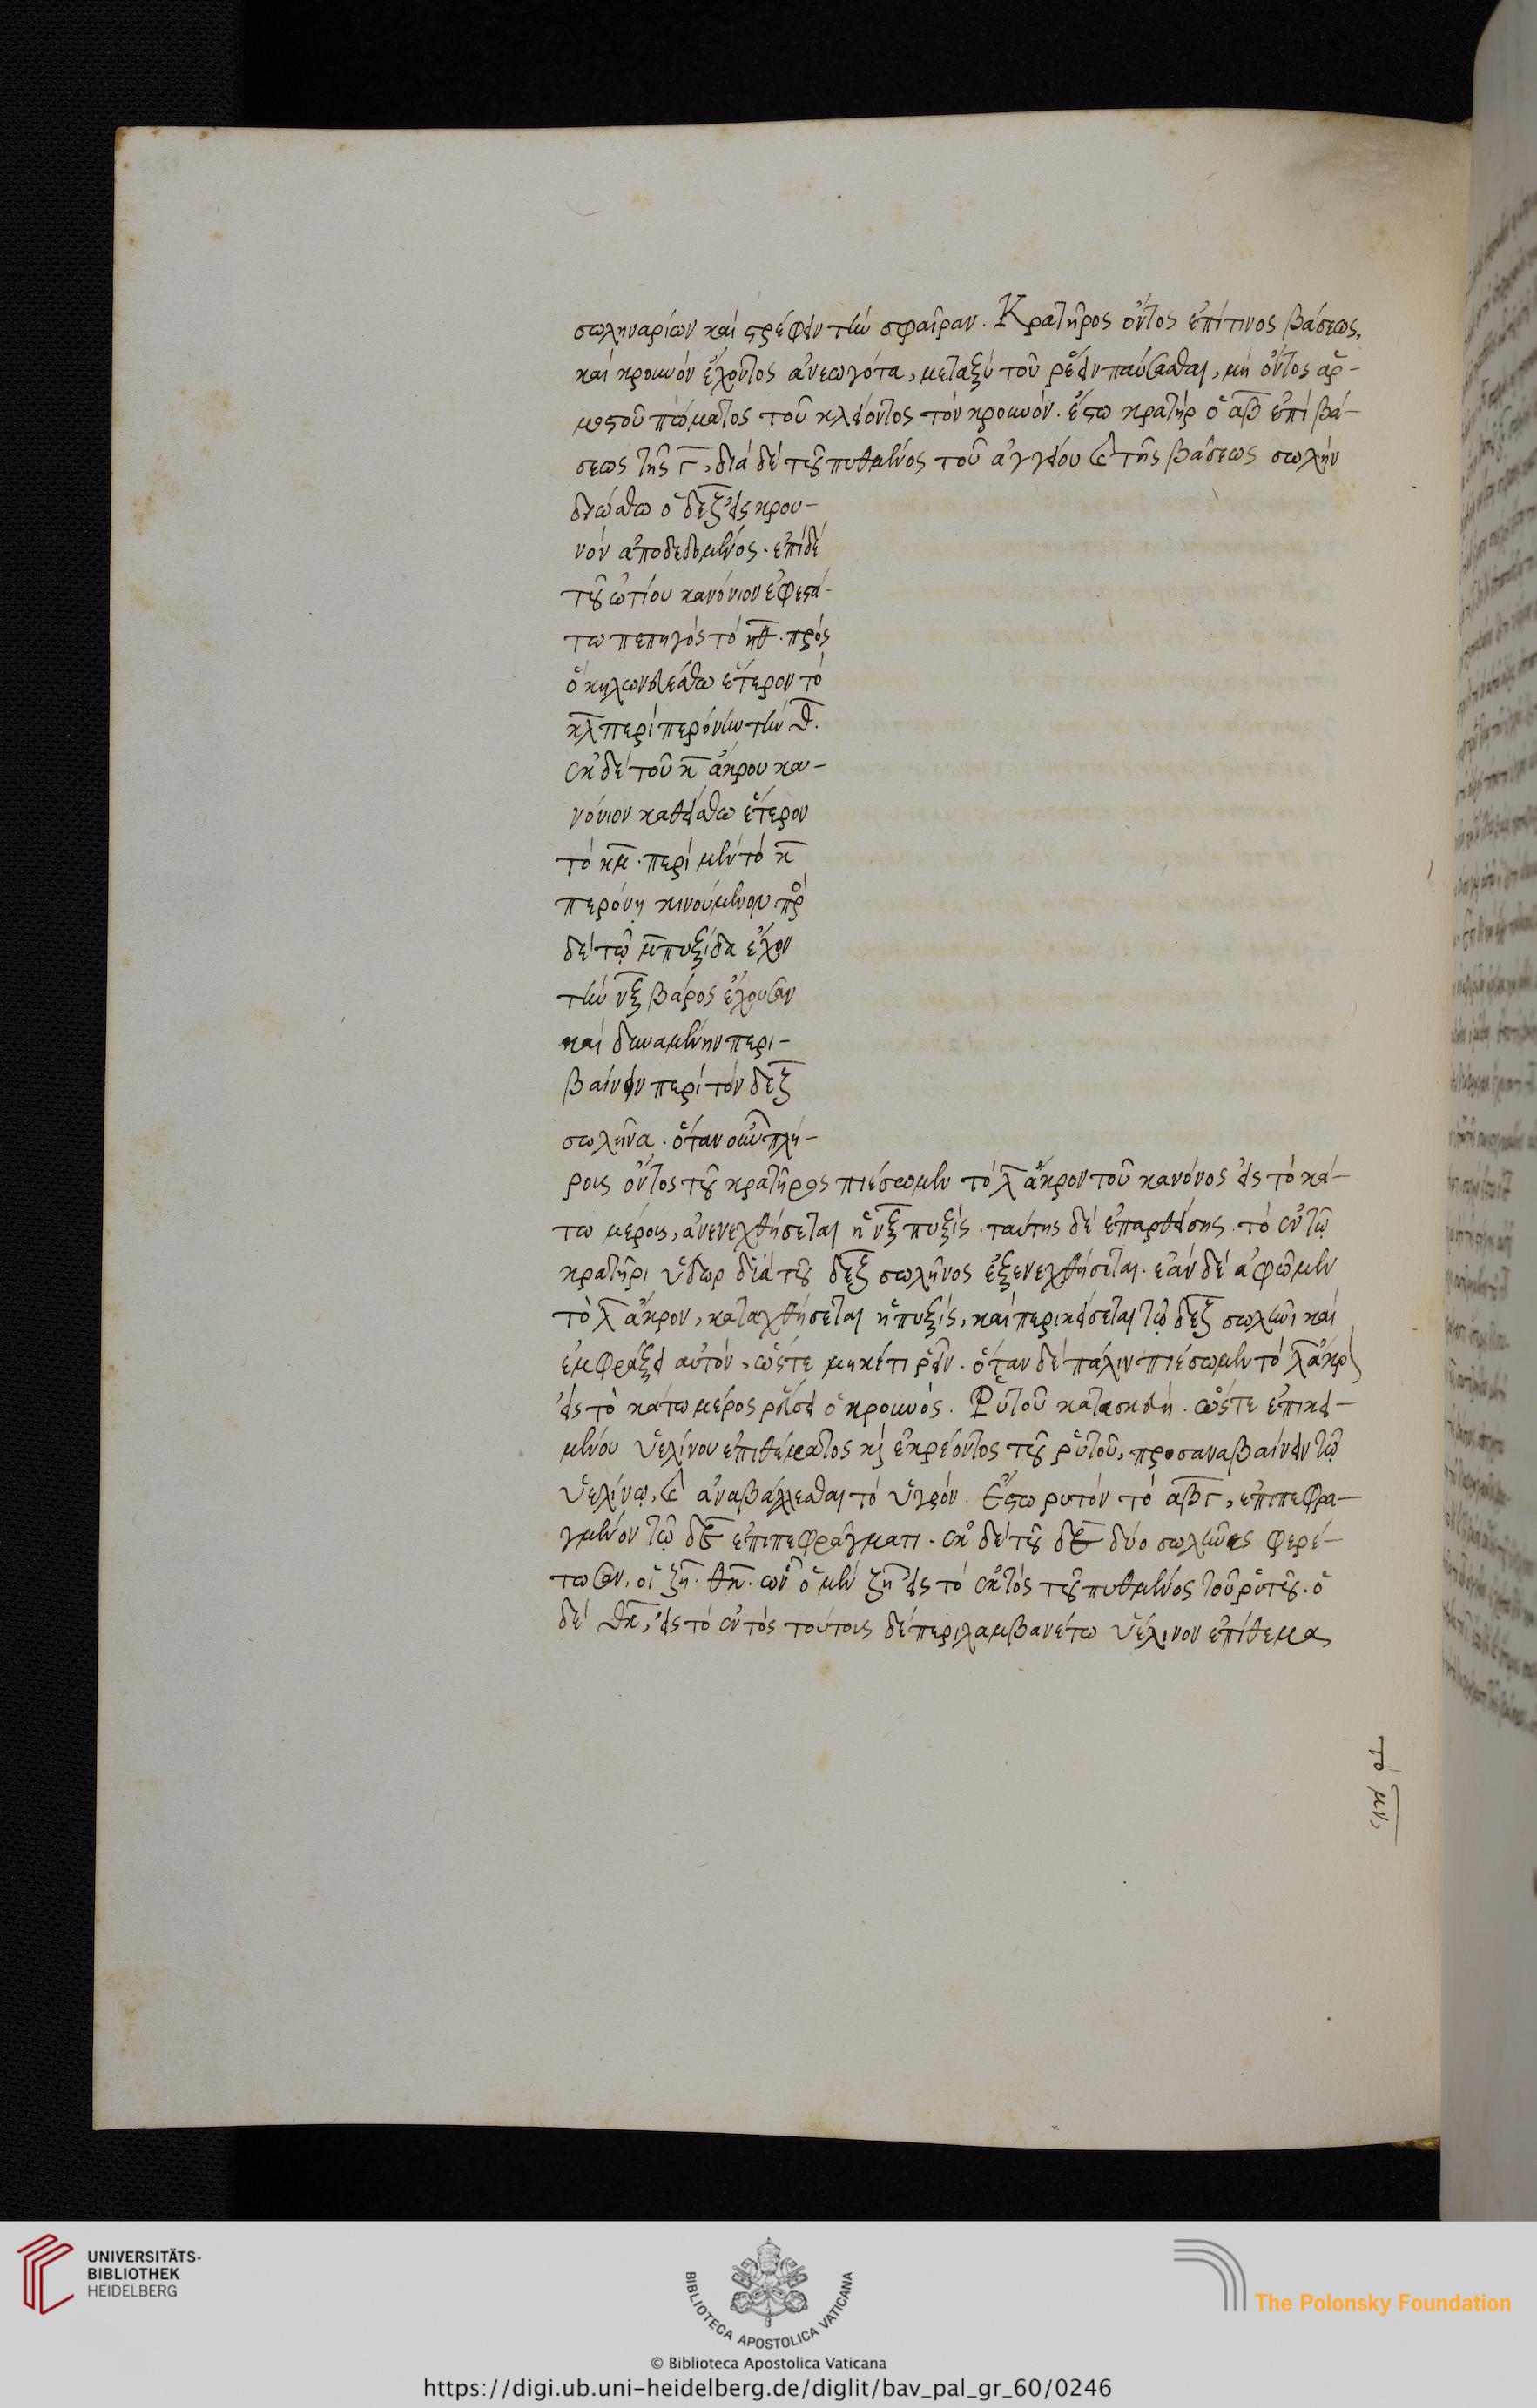 σωληναρίων καὶ στρέφειν τὴν σφαῖραν. Κρατῆρος ὄντος ἐπί τινος βάσεως,
καὶ κρουνὸν ἔχοντος ἀνεωγότα, μεταξὺ τοῦ ῥέειν παύσασθαι, μὴ ὄντος ἁρ-
μοστοῦ πώματος τοῦ κλείοντος τὸν κρουνόν. ἔστω κρατὴρ ὁ αβ ἐπὶ βά-
σεως τῆς γ, διὰ δὲ τοῦ πυθμένος τοῦ ἀγγείου καὶ τῆς βάσεως σωλὴν
διώσθω ὁ δεζ εἰς κρου-
νὸν ἀποδεδομένος. ἐπὶ δὲ
τοῦ ὠτίου κανόνιον ἐφεστά-
τω πεπηγὸς τὸ ηθ. πρὸς
ὃ κηλωνευέσθω ἕτερον τὸ
κλ περὶ περόνην τὴν θ.
ἐκ δὲ τοῦ κ ἄκρου κα-
νόνιον καθείσθω ἕτερον
τὸ κμ. περὶ μὲν τὸ κ
περόνῃ κινούμενον. πρὸς
δὲ τῷ μ πυξίδα ἔχον
τὴν νξ βάρος ἔχουσαν
καὶ δυναμένην περι-
βαίνειν περὶ τὸν δεζ
σωλῆνα. ὅταν οὖν πλή-
ρους ὄντος τοῦ κρατῆρος πιέσωμεν τὸ λ ἄκρον τοῦ κανόνος εἰς τὸ κά-
τω μέρος, ἀνενεχθήσεται ἡ νξ πυξίς. ταύτης δὲ ἐπαρθείσης τὸ ἐν τῷ
κρατῆρι ὕδωρ διὰ τοῦ δεζ σωλῆνος ἐξενεχθήσεται. ἐὰν δὲ ἀφῶμεν
τὸ λ ἄκρον, καταχθήσεται ἡ πυξίς, καὶ περικείσεται τῷ δεζ σωλῆνι καὶ
ἐμφράξει αὐτόν, ὥστε μηκέτι ῥεῖν. ὅταν δὲ πάλιν πιέσωμεν τὸ λ ἄκρον
εἰς τὸ κάτω μέρος ῥεύσει ὁ κρουνός. Ῥυτοῦ κατασκευή. ὥστε ἐπικει-
μένου ὑελίνου ἐπιθέματος καὶ ἐκρέοντος τοῦ ῥυτοῦ, προσαναβαίνειν τῷ
ὑελίνῳ, καὶ ἀναβάλλεσθαι τὸ ὑγρόν. Ἔστω ῥυτὸν τὸ αβγ, ἐπιπεφρα-
γμένον τῷ δε ἐπιπεφράγματι. ἐκ δὲ τοῦ δε δύο σωλῆνες φερέ-
τωσαν, οἱ ζη. θκ. ὧν ὁ μὲν ζη εἰς τὸ ἐκτὸς τοῦ πυθμένος τοῦ ῥυτοῦ. ὁ
δὲ θκ, εἰς τὸ ἐντός τούτους δὲ περιλαμβανέτω ὑέλινον ἐπίθεμα,
τὸ μν,
UNIVERSITÄTS-
BIBLIOTHEK
HEIDELBERG
BIBLIOTECA APOSTOLICA VATICANA
The Polonsky Foundation
© Biblioteca Apostolica Vaticana
https://digi.ub.uni-heidelberg.de/diglit/bav_pal_gr_60/0246